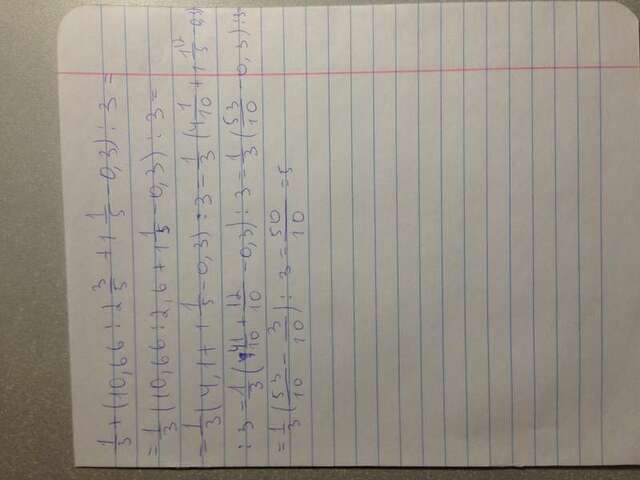 1/3 + (10,66 : 2 3/5 + 1 1/5 - 0,3) : 3 =
= 1/3 (10,66 : 2,6 + 1 1/5 - 0,3) : 3 =
= 1/3 (4,1 + 1 1/5 - 0,3) : 3 = 1/3 (4 1/10 + 1 1/5 - 0,3)
: 3 = 1/3 (41/10 + 12/10 - 0,3) : 3 = 1/3 (53/10 - 0,3) : 3 =
= 1/3 (53/10 - 3/10) : 3 = 50/10 = 5